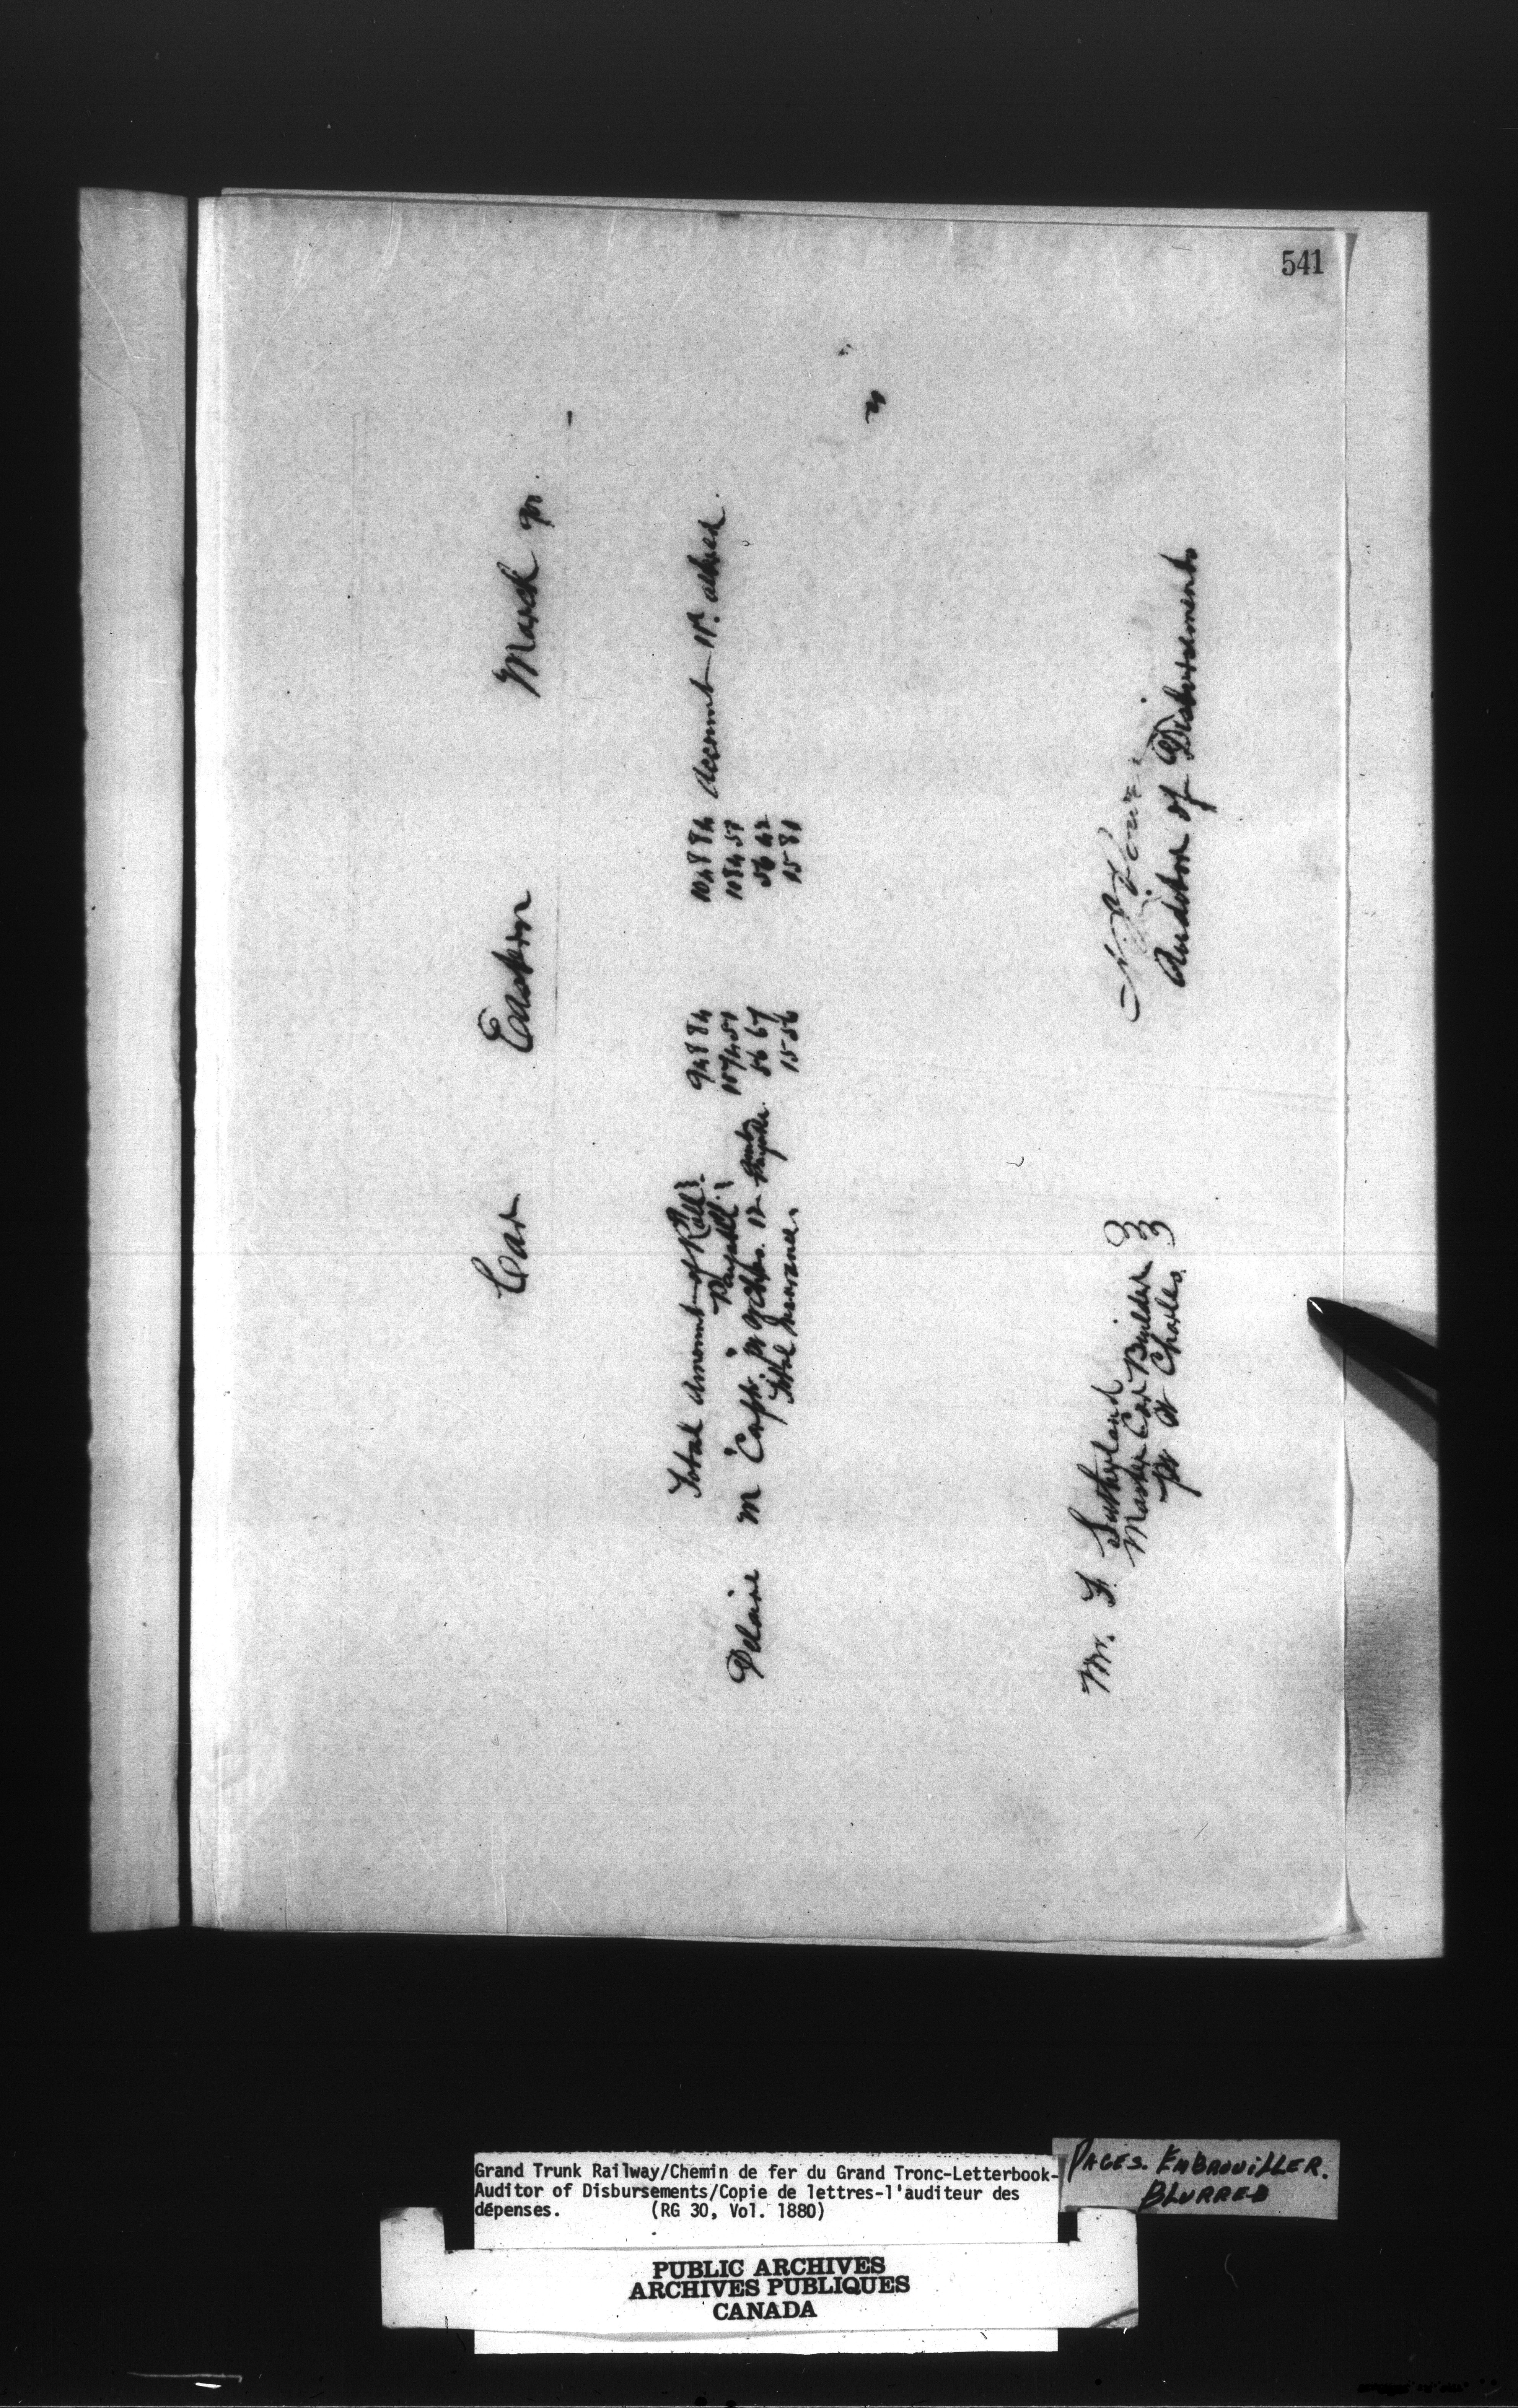 541
Car Eastern March
Total Amount of Roll 948 84 1048 84 Account
Payable 1074 51 1084 51
Delaire M 56 67 56 42
Total Insurance 15 56 15 81
Auditor of Disbursements
Mr. F. Sutherland
Master Car Builder
Pt St Charles
Grand Trunk Railway/Chemin de fer du Grand Tronc-Letterbook-
Auditor of Disbursements/Copie de lettres-l'auditeur des
dépenses. (RG 30, Vol. 1880)
PAGES. EMBROUILLER.
BLURRED
PUBLIC ARCHIVES
ARCHIVES PUBLIQUES
CANADA